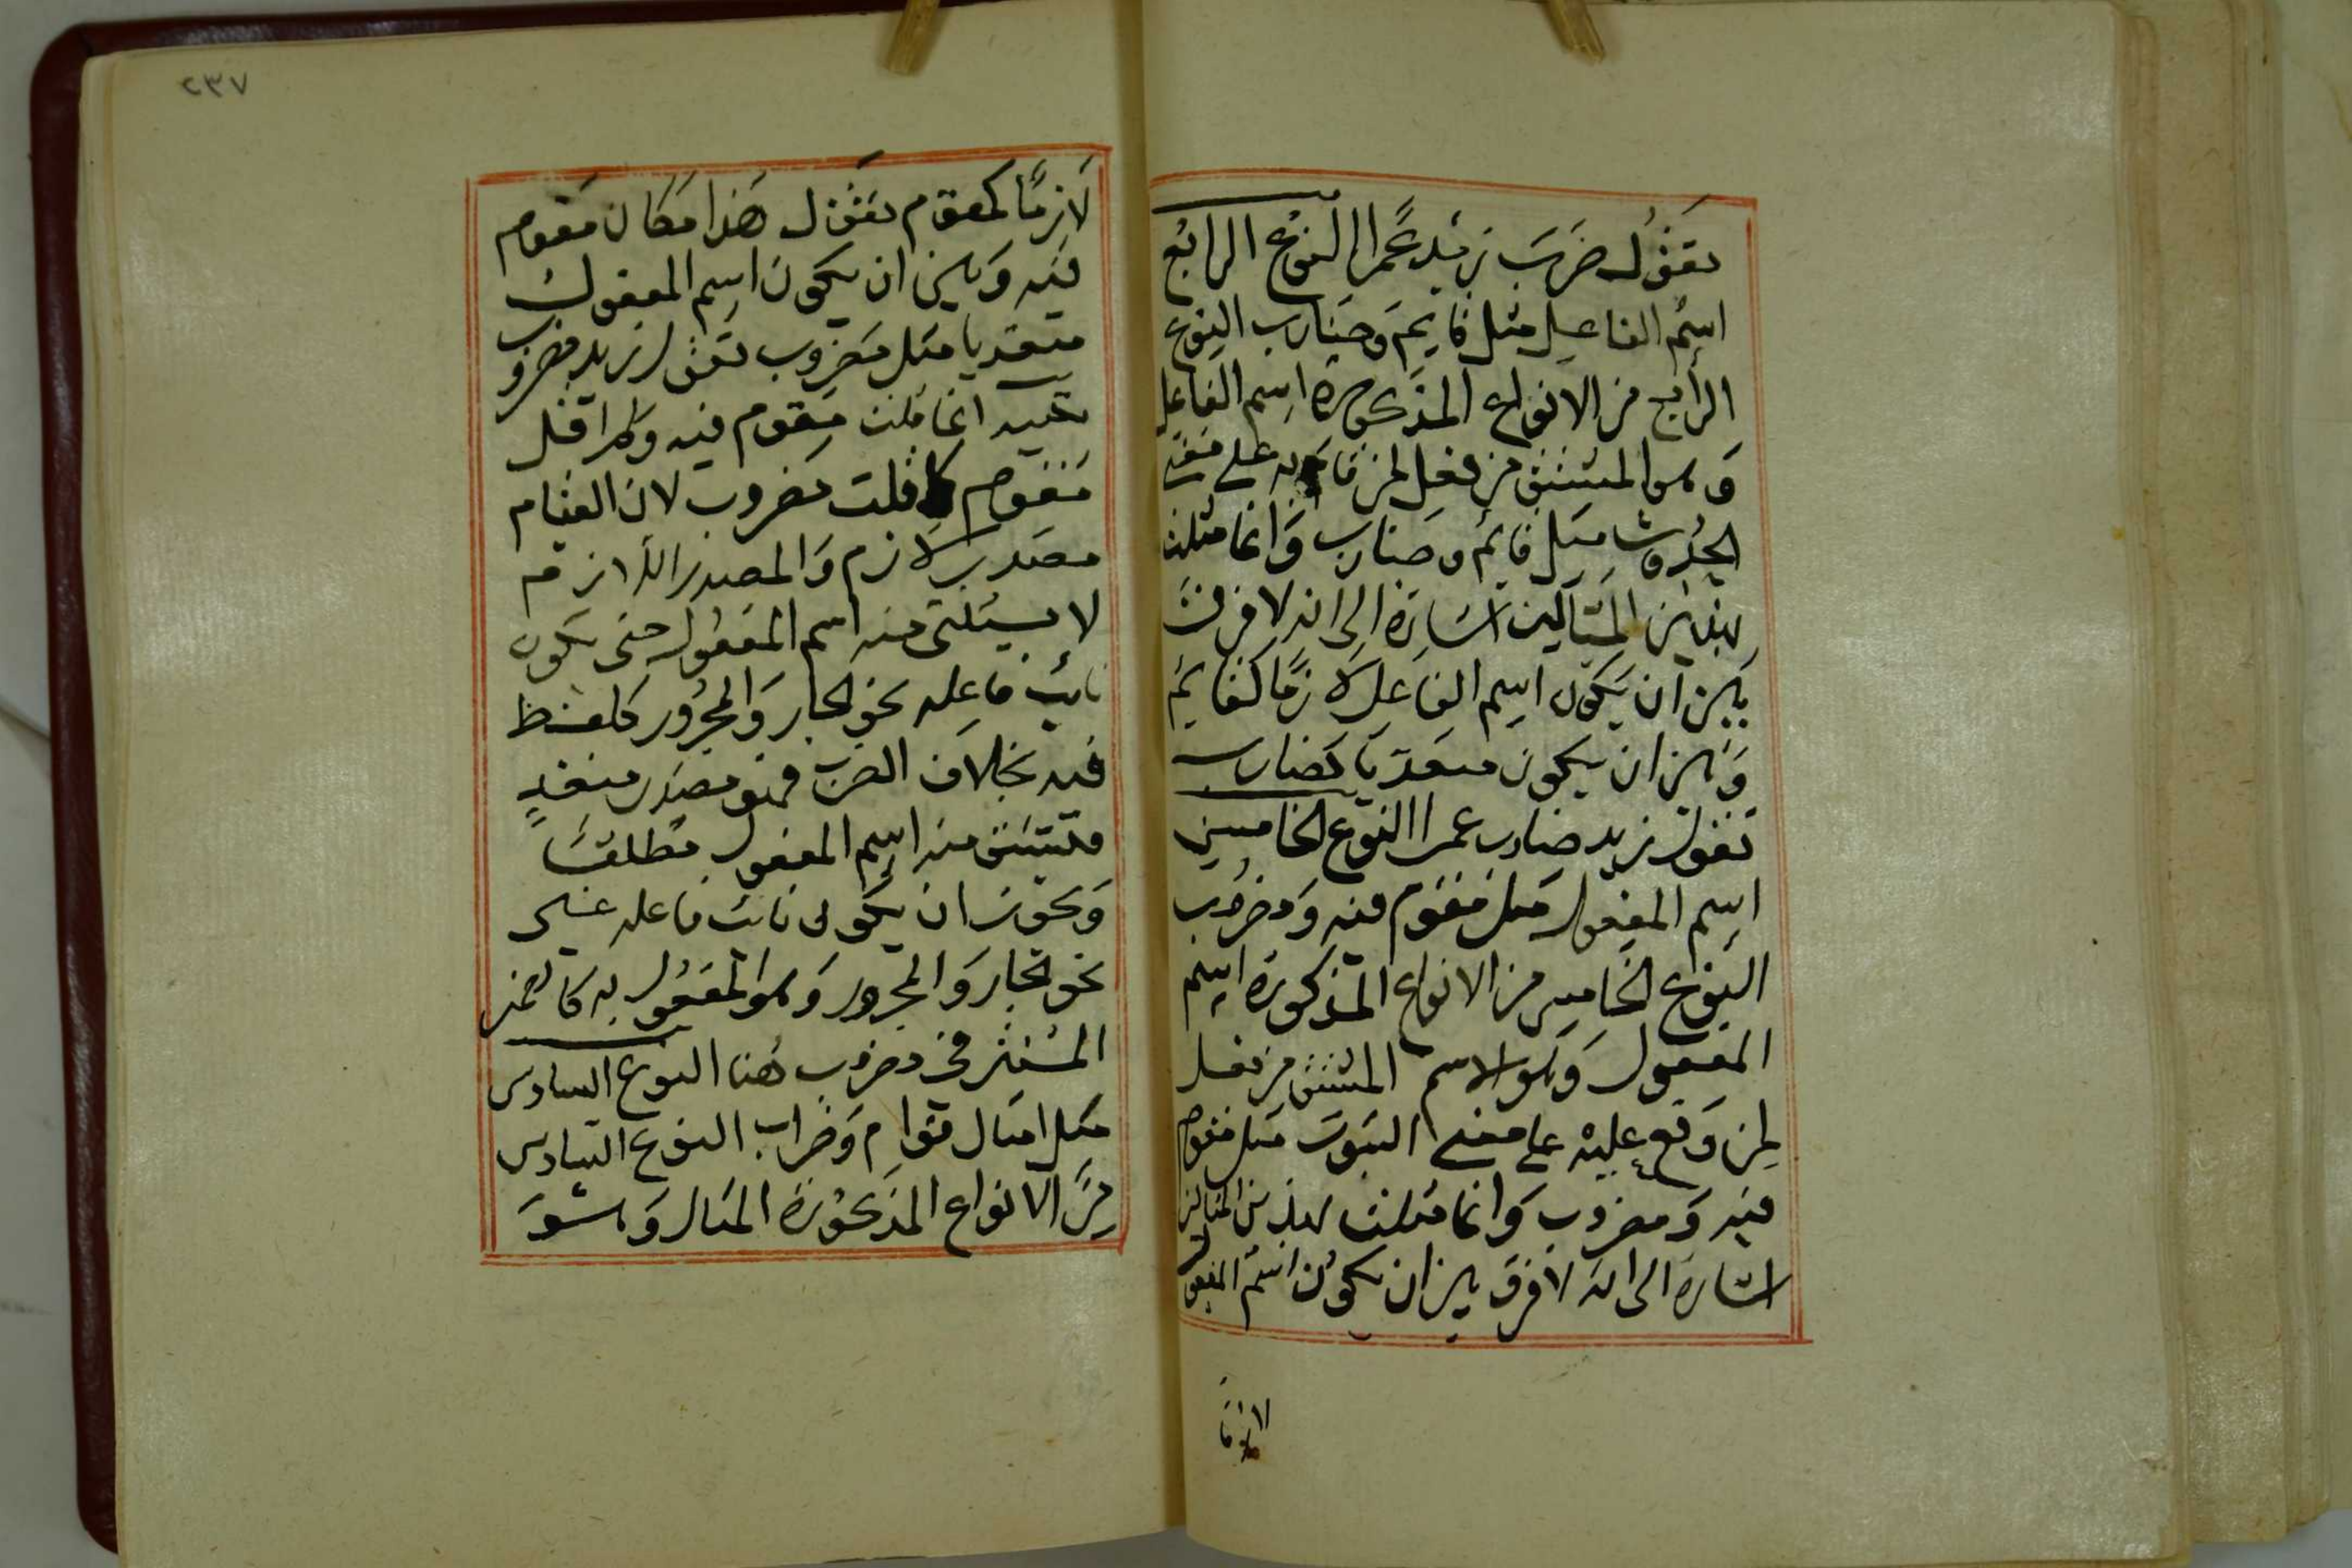 تقول ضرب زيد عمرا النوع الرابع
اسم الفاعل مثل قايم وضارب النوع
الرابع من الانواع المذكورة اسم الفاعل
وهو المشتق من فعل لمن قام به على معنى
الحدوث مثل قايم وضارب وانما مثلت
بهذين المثالين اشارة الى انه لا فرق
بين ان يكون اسم الفاعل لازما كقايم
وبين ان يكون متعديا كضارب
تقول زيد ضارب عمرا النوع الخامس
اسم المفعول مثل مقوم فيه ومضروب
النوع الخامس من الانواع المذكورة اسم
المفعول وهو الاسم المشتق من فعل
لمن وقع عليه على معنى الثبوت مثل مقوم
فيه ومضروب وانما مثلت بهذين المثالين
اشارة الى انه لا فرق بين ان يكون اسم المفعول
لازما
٢٣٧
لازما كمقوم تقول هذا مكان مقوم
فيه وبين ان يكون اسم المفعول
متعديا مثل مضروب تقول زيد مضروب
تنبيه انما قلت مقوم فيه ولم اقل
مقوم كما قلت مضروب لان القيام
مصدر لازم والمصدر اللازم
لا يشتق منه اسم المفعول حتى يكون
نائب فاعله نحو الجار والمجرور كلفظ
فيه بخلاف الضرب فهو مصدر متعد
فيشتق منه اسم المفعول مطلقا
ويجوز ان يكون نائب فاعله غير
نحو الجار والمجرور وهو المفعول به كالضمير
المستتر في مضروب هنا النوع السادس
مثل امثال قوام وضراب النوع السادس
من الانواع المذكورة المثال وهو